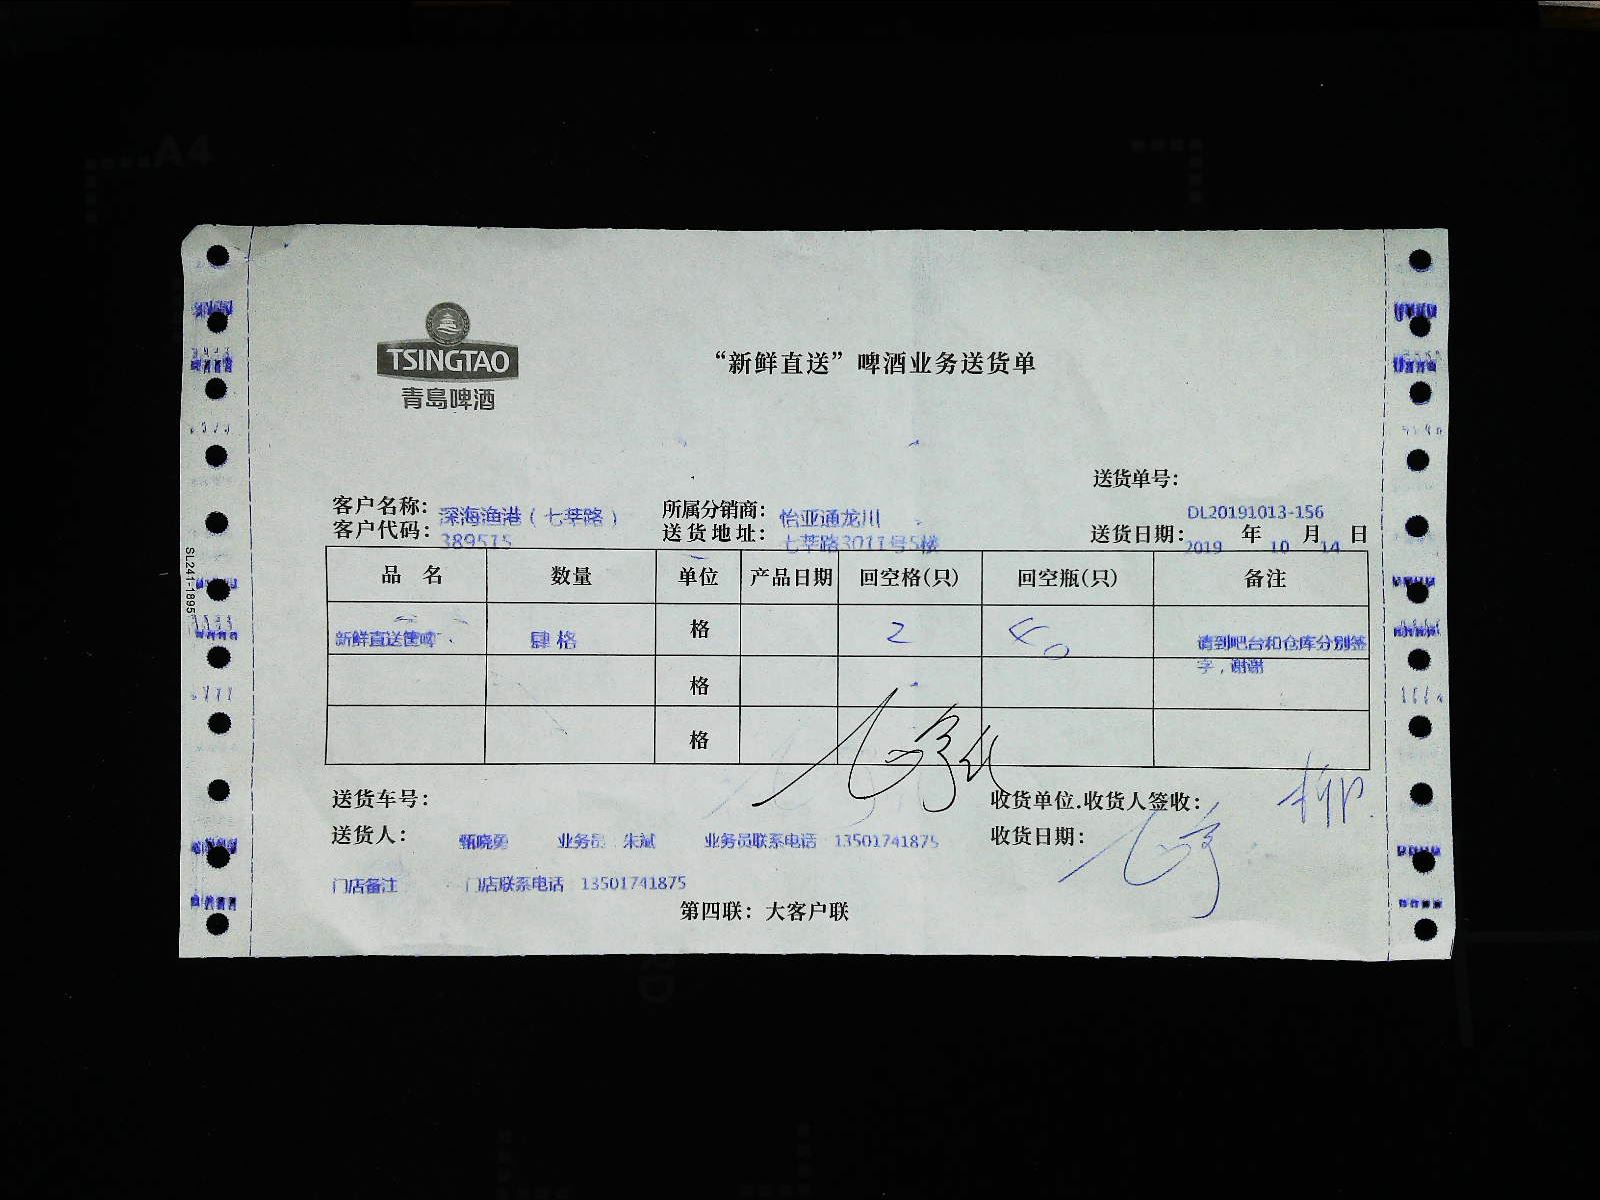 TSINGTAO
青岛啤酒
“新鲜直送”啤酒业务送货单
送货单号：
DL20191013-156
客户名称：深海渔港（七莘路） 所属分销商：怡亚通龙川
客户代码：389515 送货地址：七莘路3011号5楼 送货日期：2019 年 10 月 14 日
品 名 数量 单位 产品日期 回空格(只) 回空瓶(只) 备注
新鲜直送 肆格 格 2 请到吧台和仓库分别签
字，谢谢
格
格
送货车号： 收货单位.收货人签收：
送货人：甄晓勇 业务员 朱斌 业务员联系电话 13501741875 收货日期：
门店备注 门店联系电话 13501741875
第四联：大客户联
SL241-1895